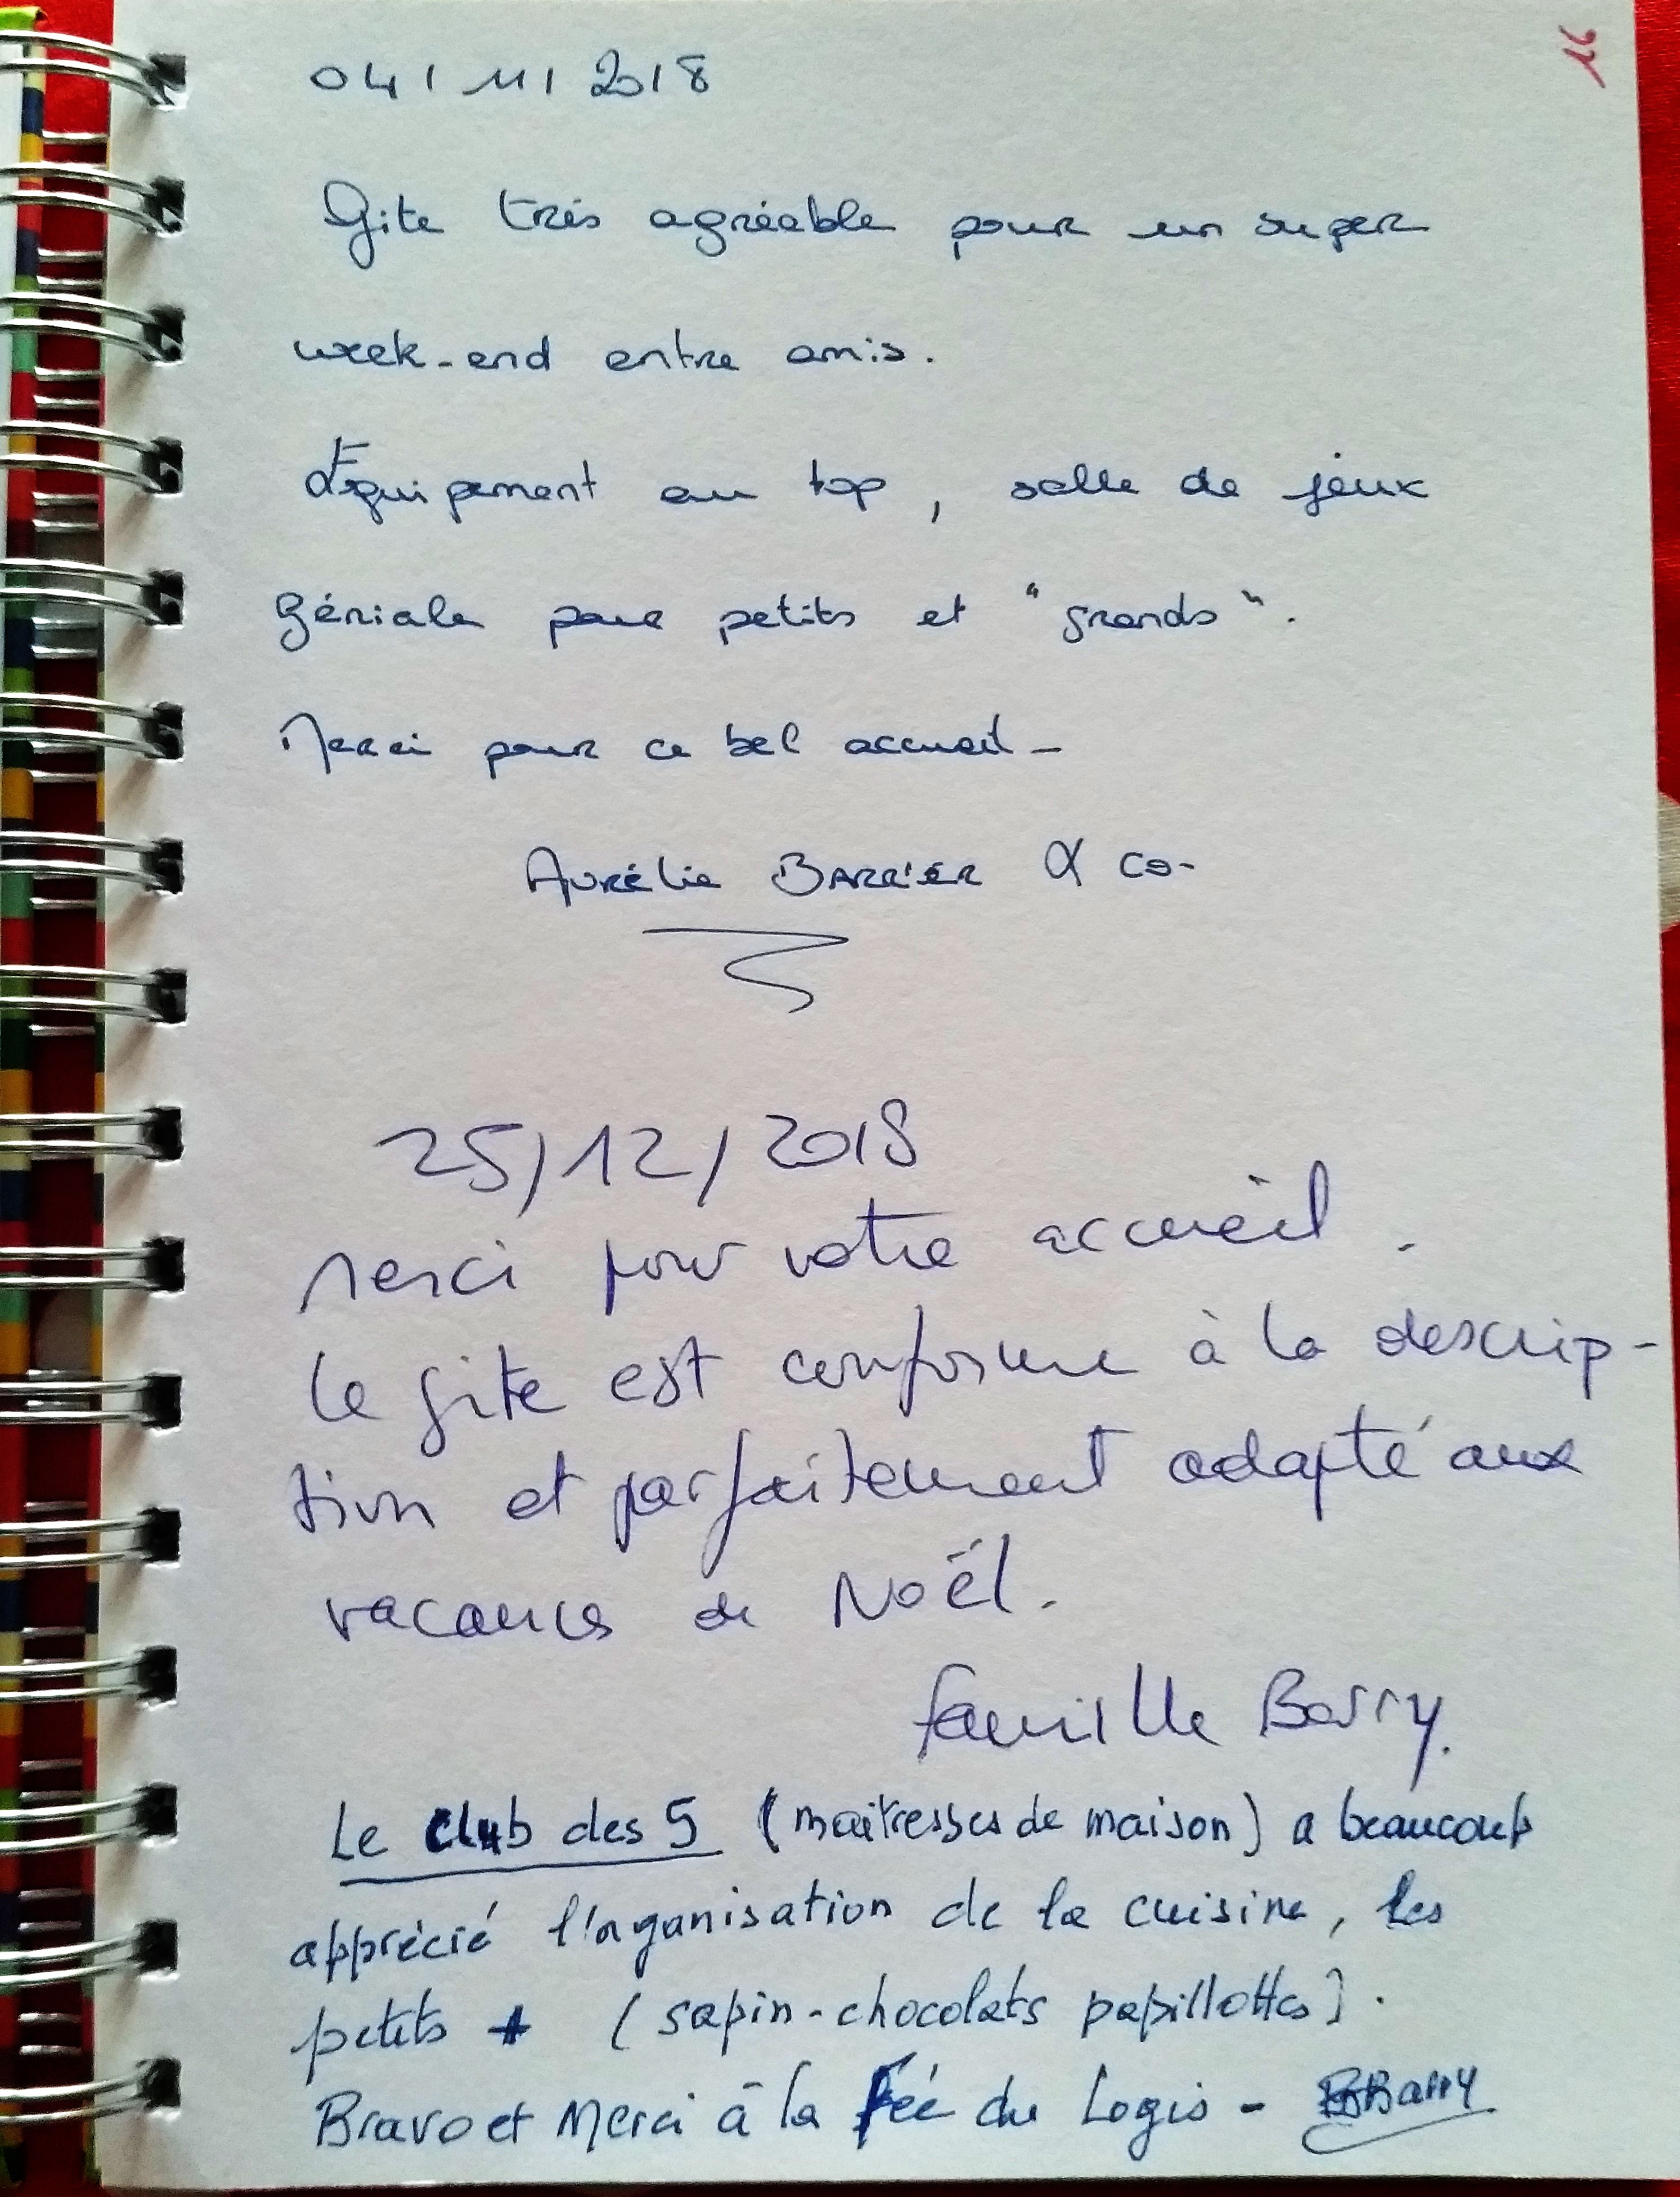 16
04/11/2018
Gite très agréable pour un super
week-end entre amis.
Équipement au top, salle de jeux
géniale pour petits et "grands".
Merci pour ce bel accueil -
Aurélie BARRIER & co-
25/12/2018
Merci pour votre accueil.
Le gite est conforme à la descrip-
tion et parfaitement adapté aux
vacances de Noël.
famille Barry.
Le club des 5 (maitresses de maison) a beaucoup
apprécié l'organisation de la cuisine, les
petits + (sapin-chocolats papillottes).
Bravo et Merci à la Fée du Logis - BBarry